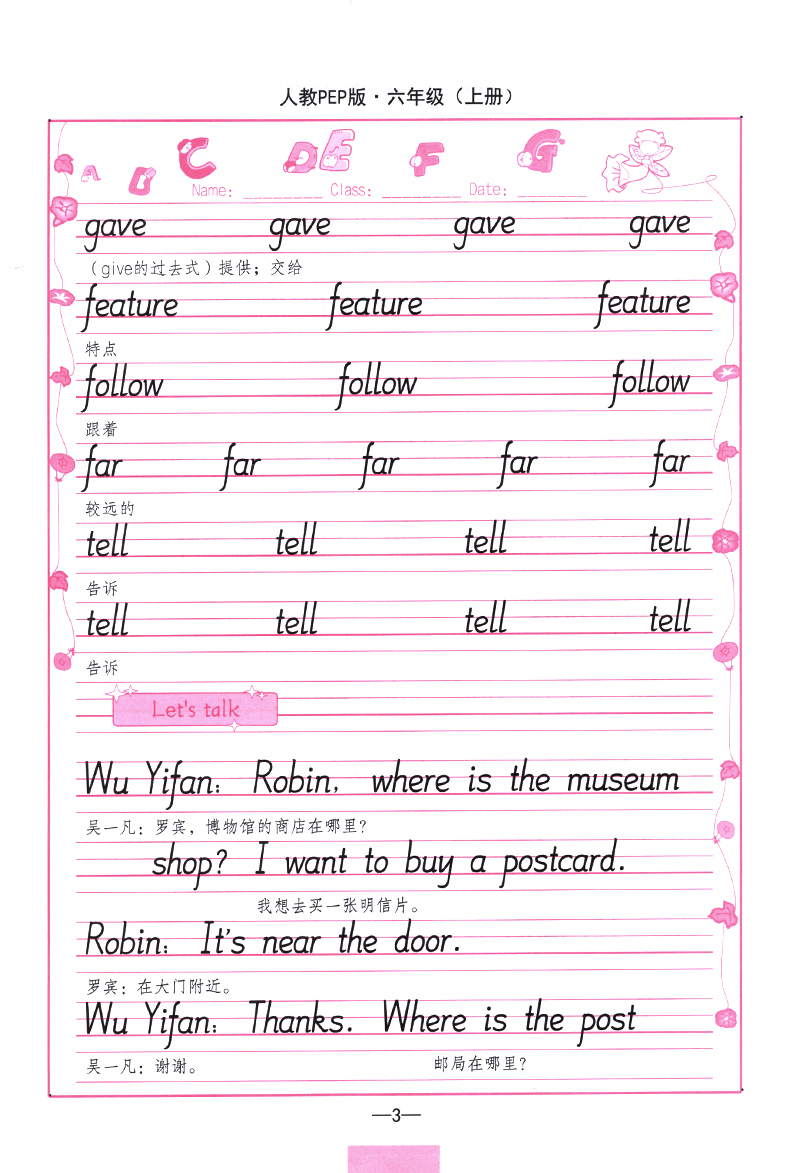 人教PEP版·六年级（上册）
A B C D E F G
Name: ________ Class: ________ Date: ________
gave gave gave gave
（give的过去式）提供；交给
feature feature feature
特点
follow follow follow
跟着
far far far far far
较远的
tell tell tell tell
告诉
tell tell tell tell
告诉
Let's talk
Wu Yifan: Robin, where is the museum
吴一凡：罗宾，博物馆的商店在哪里？
shop? I want to buy a postcard.
我想去买一张明信片。
Robin: It's near the door.
罗宾：在大门附近。
Wu Yifan: Thanks. Where is the post
吴一凡：谢谢。 邮局在哪里？
—3—